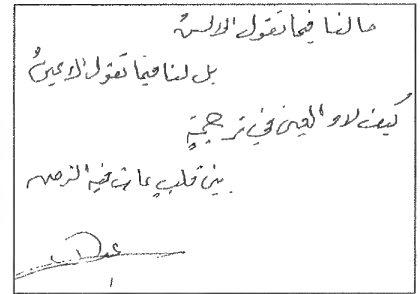 مالنا فيما تَقول الالسنُ
بل لنا فيما تَقول الاعينُ
كيف لا و العين في ترجمةٍ
بين قلبٍ عاث فيه الزمن